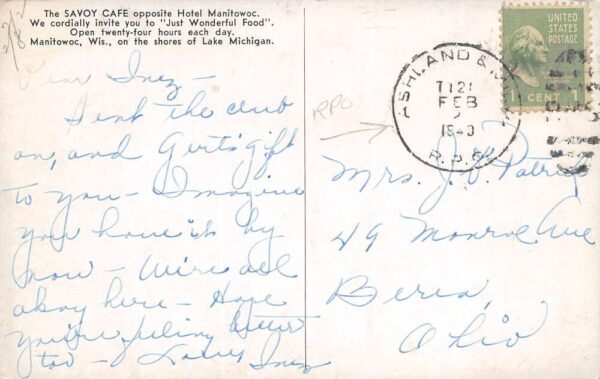 The SAVOY CAFE opposite Hotel Manitowoc.
We cordially invite you to "Just Wonderful Food".
Open twenty-four hours each day.
Manitowoc, Wis., on the shores of Lake Michigan.
Dear Inez -
I sent the club
on, and Gert's gift
to you - Imagine
you have it by
now - We're all
okay here - Hope
you're feeling better
too - Love, Inez
RPO
ASHLAND &
TR 21
FEB
2
1940
R.P.O.
UNITED
STATES
POSTAGE
1 CENT 1
Mrs. J. V. Patrick
49 Monroe Ave
Berea,
Ohio